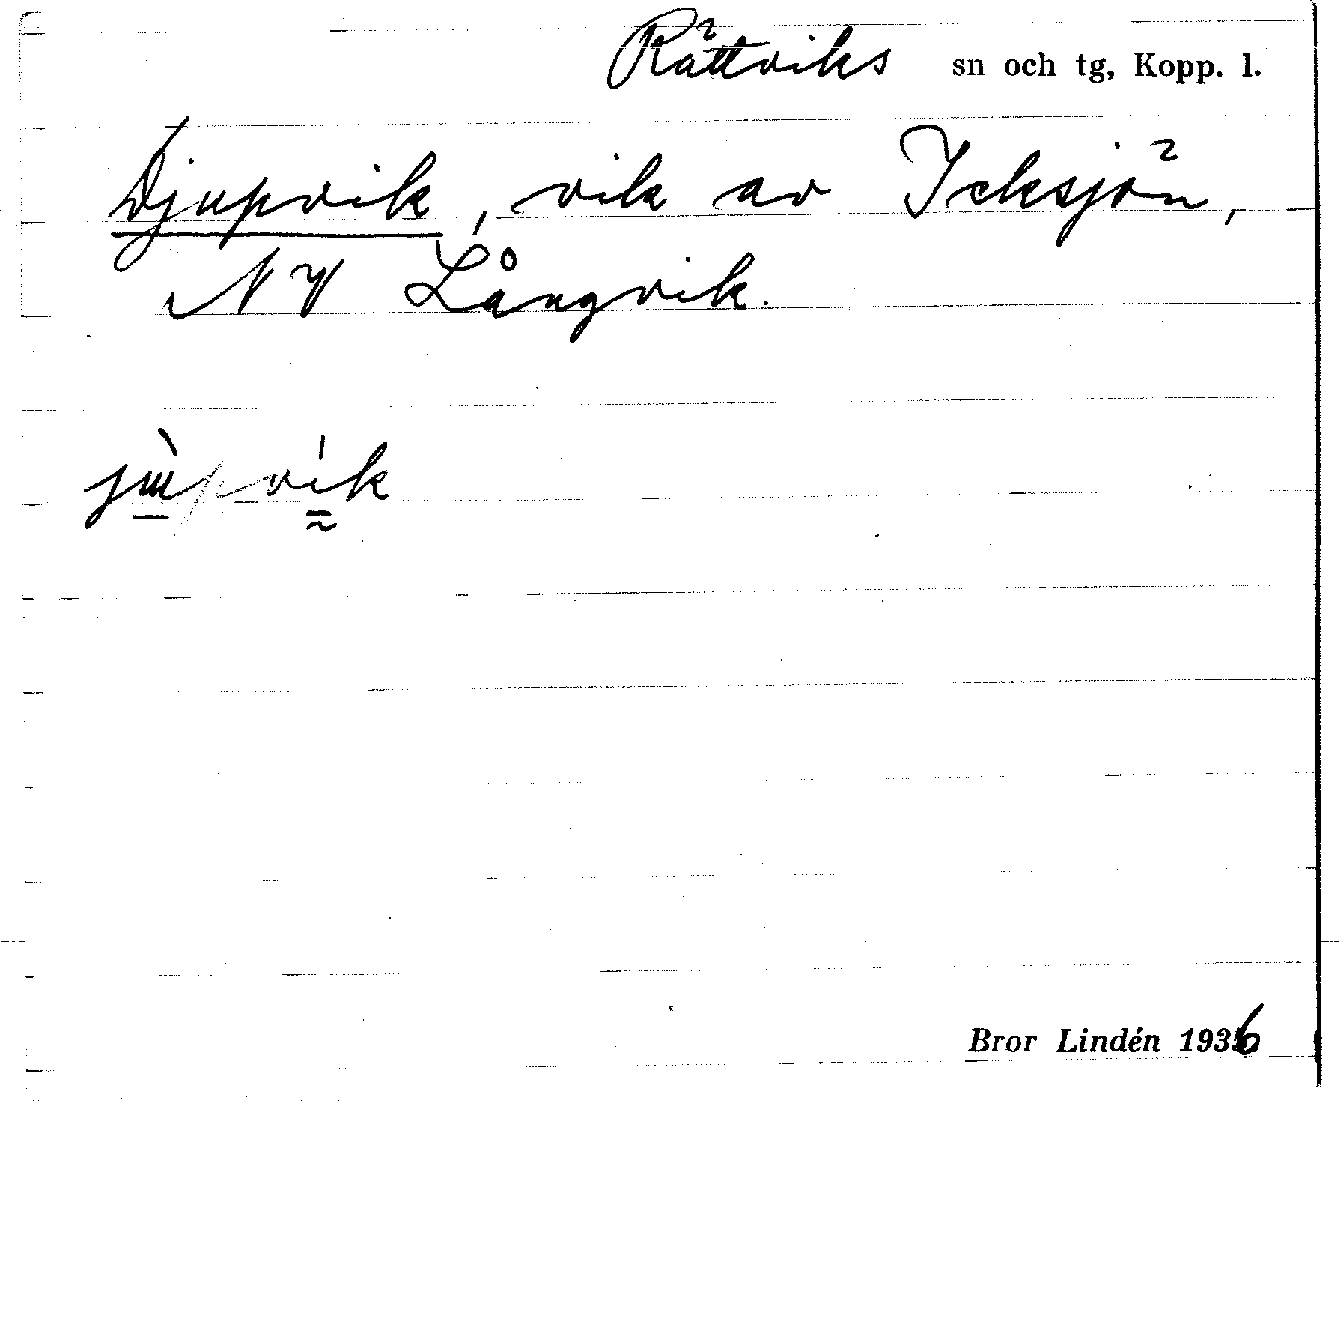 Rättviks sn och tg, Kopp. l.
Djupvik, vik av Icksjön,
NV Långvik.
jùpvík
Bror Lindén 1936